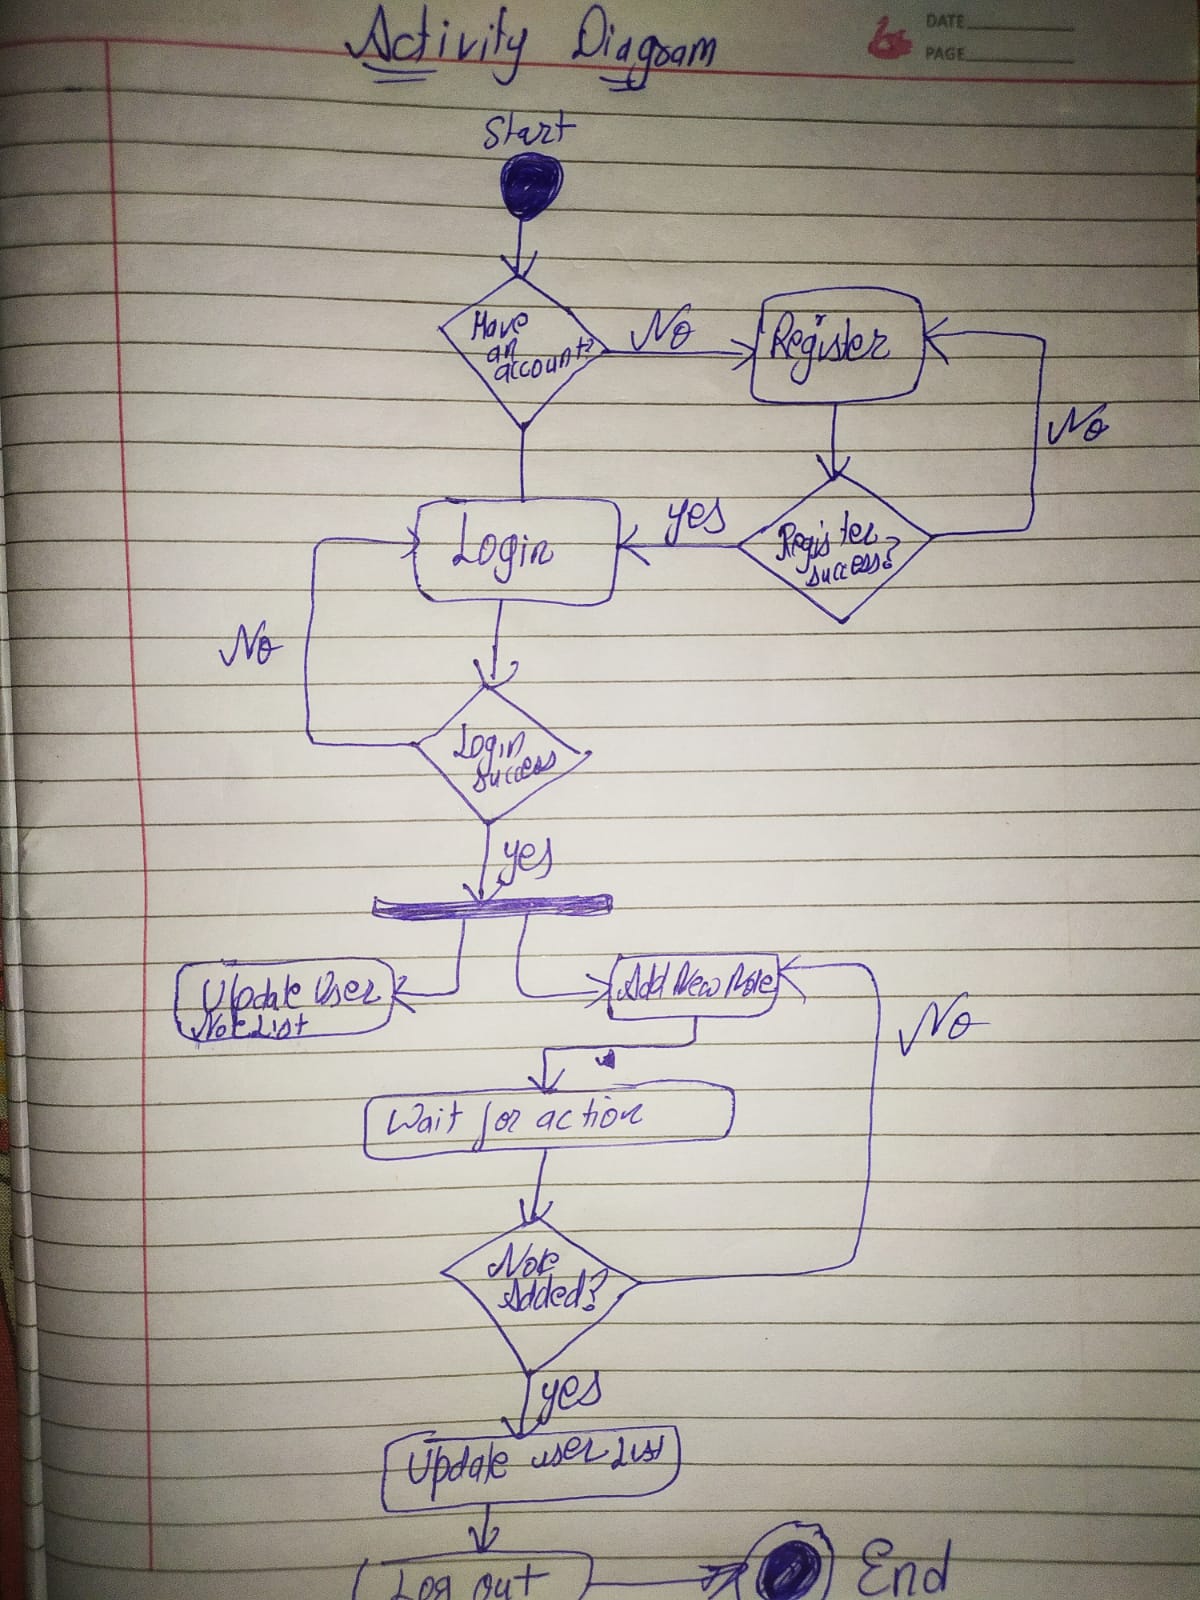 Activity Diagram
DATE
PAGE
Start
Have
an
account?
No
Register
No
yes
Login
Register
success?
No
Login
success
yes
Update User
Note List
Add New Note
No
Wait for action
Note
Added?
yes
Update user List
Log out
End